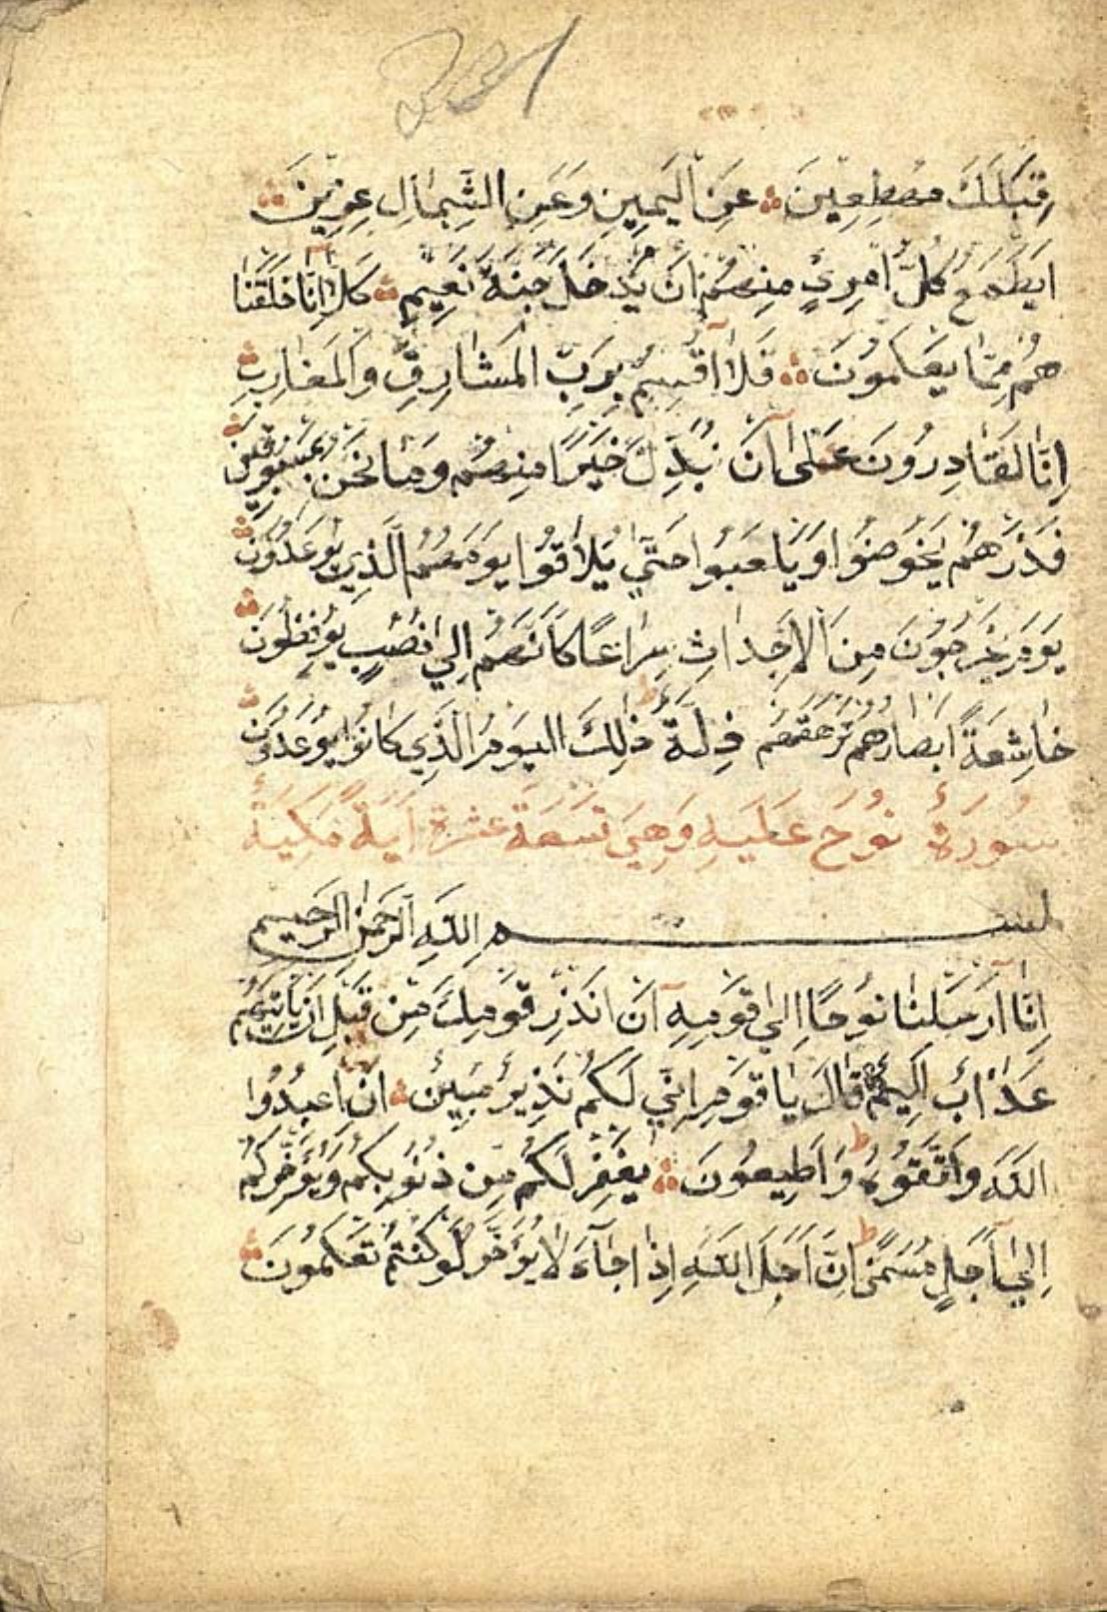 قِبَلَكَ مُهْطِعِينَ عَنِ الْيَمِينِ وَعَنِ الشِّمَالِ عِزِينَ
اَيَطْمَعُ كُلُّ امْرِئٍ مِنْهُمْ اَنْ يُدْخَلَ جَنَّةَ نَعِيمٍ كَلَّا اِنَّا خَلَقْنَا
هُمْ مِمَّا يَعْلَمُونَ فَلَا اُقْسِمُ بِرَبِّ الْمَشَارِقِ وَالْمَغَارِبِ
اِنَّا لَقَادِرُونَ عَلَى اَنْ نُبَدِّلَ خَيْرًا مِنْهُمْ وَمَا نَحْنُ بِمَسْبُوقِينَ
فَذَرْهُمْ يَخُوضُوا وَيَلْعَبُوا حَتَّي يُلَاقُوا يَوْمَهُمُ الَّذِي يُوعَدُونَ
يَوْمَ يَخْرُجُونَ مِنَ الْاَجْدَاثِ سِرَاعًا كَاَنَّهُمْ اِلَي نُصُبٍ يُوفِضُونَ
خَاشِعَةً اَبْصَارُهُمْ تَرْهَقُهُمْ ذِلَّةٌ ذٰلِكَ الْيَوْمُ الَّذِي كَانُوا يُوعَدُونَ
سُورَةُ نُوحٍ عَلَيْهِ وَهِيَ تَسْعَةَ عَشْرَةَ اٰيَةً مَكِّيَّةٌ
بسم اللّهِ الرَّحْمٰنِ الرَّحِيمِ
اِنَّا اَرْسَلْنَا نُوحًا اِلَي قَوْمِهِ اَنْ اَنْذِرْ قَوْمَكَ مِنْ قَبْلِ اَنْ يَاْتِيَهُمْ
عَذَابٌ اَلِيمٌ قَالَ يَا قَوْمِ اِنِّي لَكُمْ نَذِيرٌ مُبِينٌ اَنِ اعْبُدُوا
اللّهَ وَاتَّقُوهُ وَاَطِيعُونَ يَغْفِرْ لَكُمْ مِنْ ذُنُوبِكُمْ وَيُؤَخِّرْكُمْ
اِلَي اَجَلٍ مُسَمًّى اِنَّ اَجَلَ اللّهِ اِذَا جَآءَ لَا يُؤَخَّرُ لَوْ كُنْتُمْ تَعْلَمُونَ